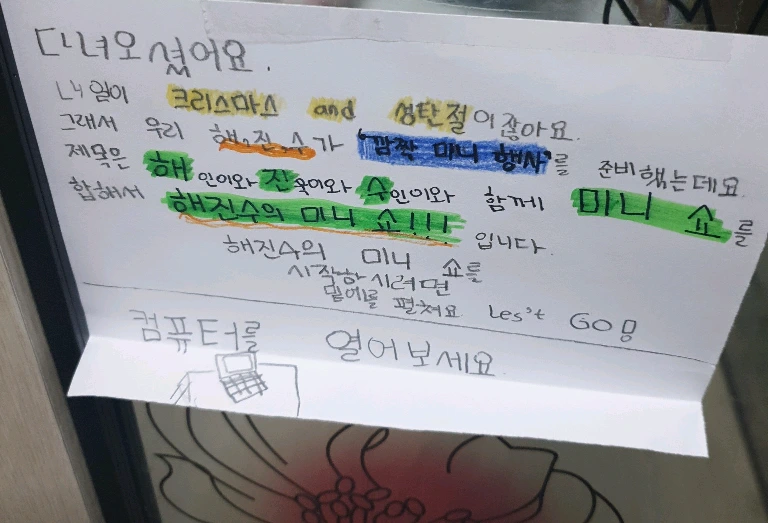 다녀오셨어요.
내일이 크리스마스 and 성탄절이잖아요.
그래서 우리 해.진.수가 '깜짝 미니 행사'를 준비했는데요
제목은 해인이와 진욱이와 수인이와 함께 미니 쇼를
합해서 해진수의 미니 쇼!!! 입니다.
해진수의 미니 쇼를
시작하시려면
밑에를 펼쳐요 Les't GO!
컴퓨터를 열어보세요.